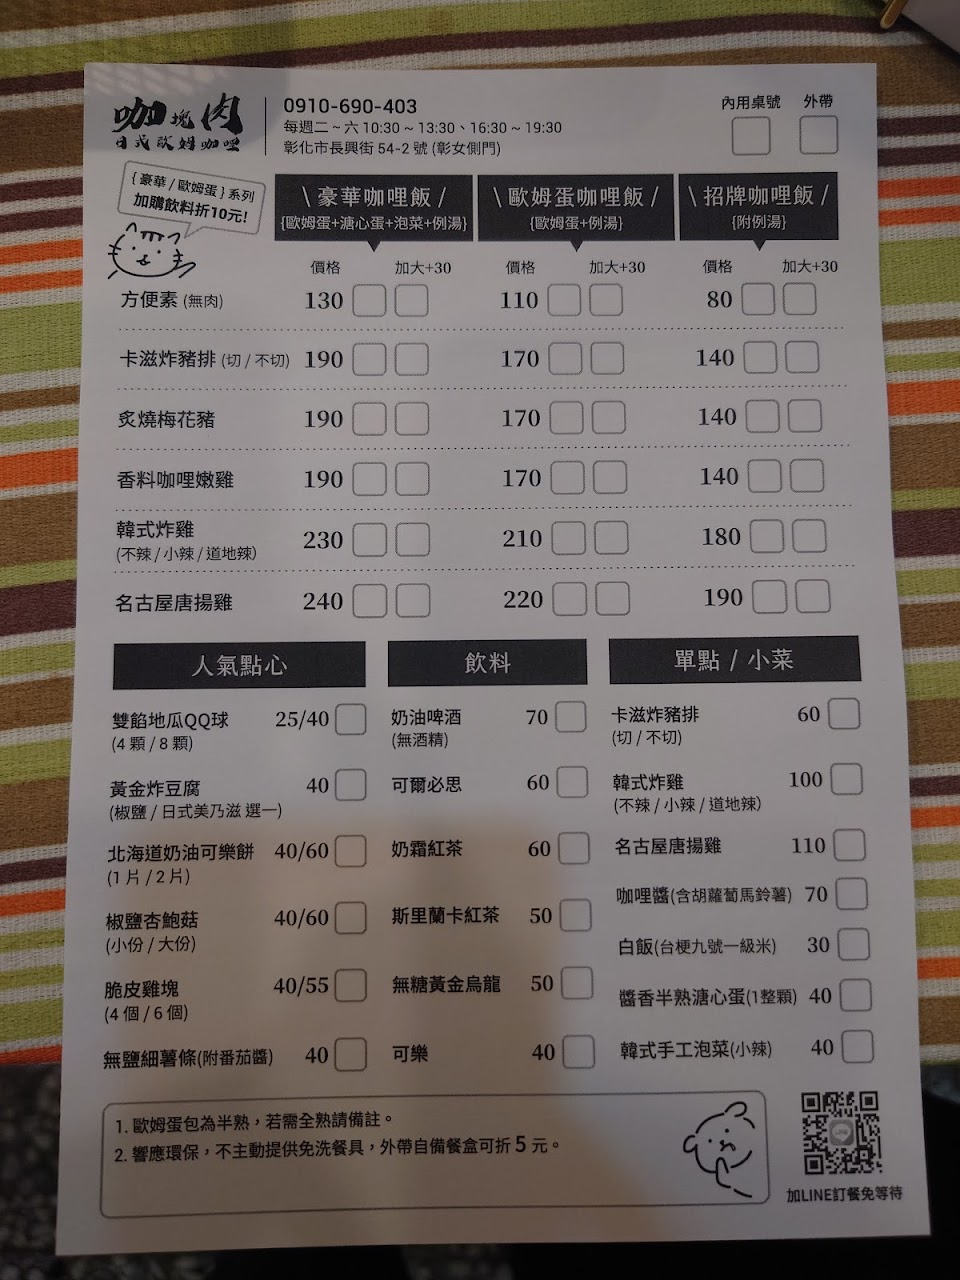 咖塊肉
日式歐姆咖哩
0910-690-403
每週二 ~ 六 10:30 ~ 13:30、16:30 ~ 19:30
彰化市長興街 54-2 號 (彰女側門)
內用桌號 外帶
{ 豪華 / 歐姆蛋 } 系列
加購飲料折10元!
\ 豪華咖哩飯 /
{歐姆蛋+溏心蛋+泡菜+例湯}
\ 歐姆蛋咖哩飯 /
{歐姆蛋+例湯}
\ 招牌咖哩飯 /
{附例湯}
價格 加大+30 價格 加大+30 價格 加大+30
方便素 (無肉) 130 110 80
卡滋炸豬排 (切 / 不切) 190 170 140
炙燒梅花豬 190 170 140
香料咖哩嫩雞 190 170 140
韓式炸雞 230 210 180
(不辣 / 小辣 / 道地辣)
名古屋唐揚雞 240 220 190
人氣點心
雙餡地瓜QQ球 25/40
(4 顆 / 8 顆)
黃金炸豆腐 40
(椒鹽 / 日式美乃滋 選一)
北海道奶油可樂餅 40/60
(1 片 / 2 片)
椒鹽杏鮑菇 40/60
(小份 / 大份)
脆皮雞塊 40/55
(4 個 / 6 個)
無鹽細薯條(附番茄醬) 40
飲料
奶油啤酒 70
(無酒精)
可爾必思 60
奶霜紅茶 60
斯里蘭卡紅茶 50
無糖黃金烏龍 50
可樂 40
單點 / 小菜
卡滋炸豬排 60
(切 / 不切)
韓式炸雞 100
(不辣 / 小辣 / 道地辣)
名古屋唐揚雞 110
咖哩醬(含胡蘿蔔馬鈴薯) 70
白飯(台梗九號一級米) 30
醬香半熟溏心蛋(1整顆) 40
韓式手工泡菜(小辣) 40
1. 歐姆蛋包為半熟，若需全熟請備註。
2. 響應環保，不主動提供免洗餐具，外帶自備餐盒可折 5 元。
加LINE訂餐免等待